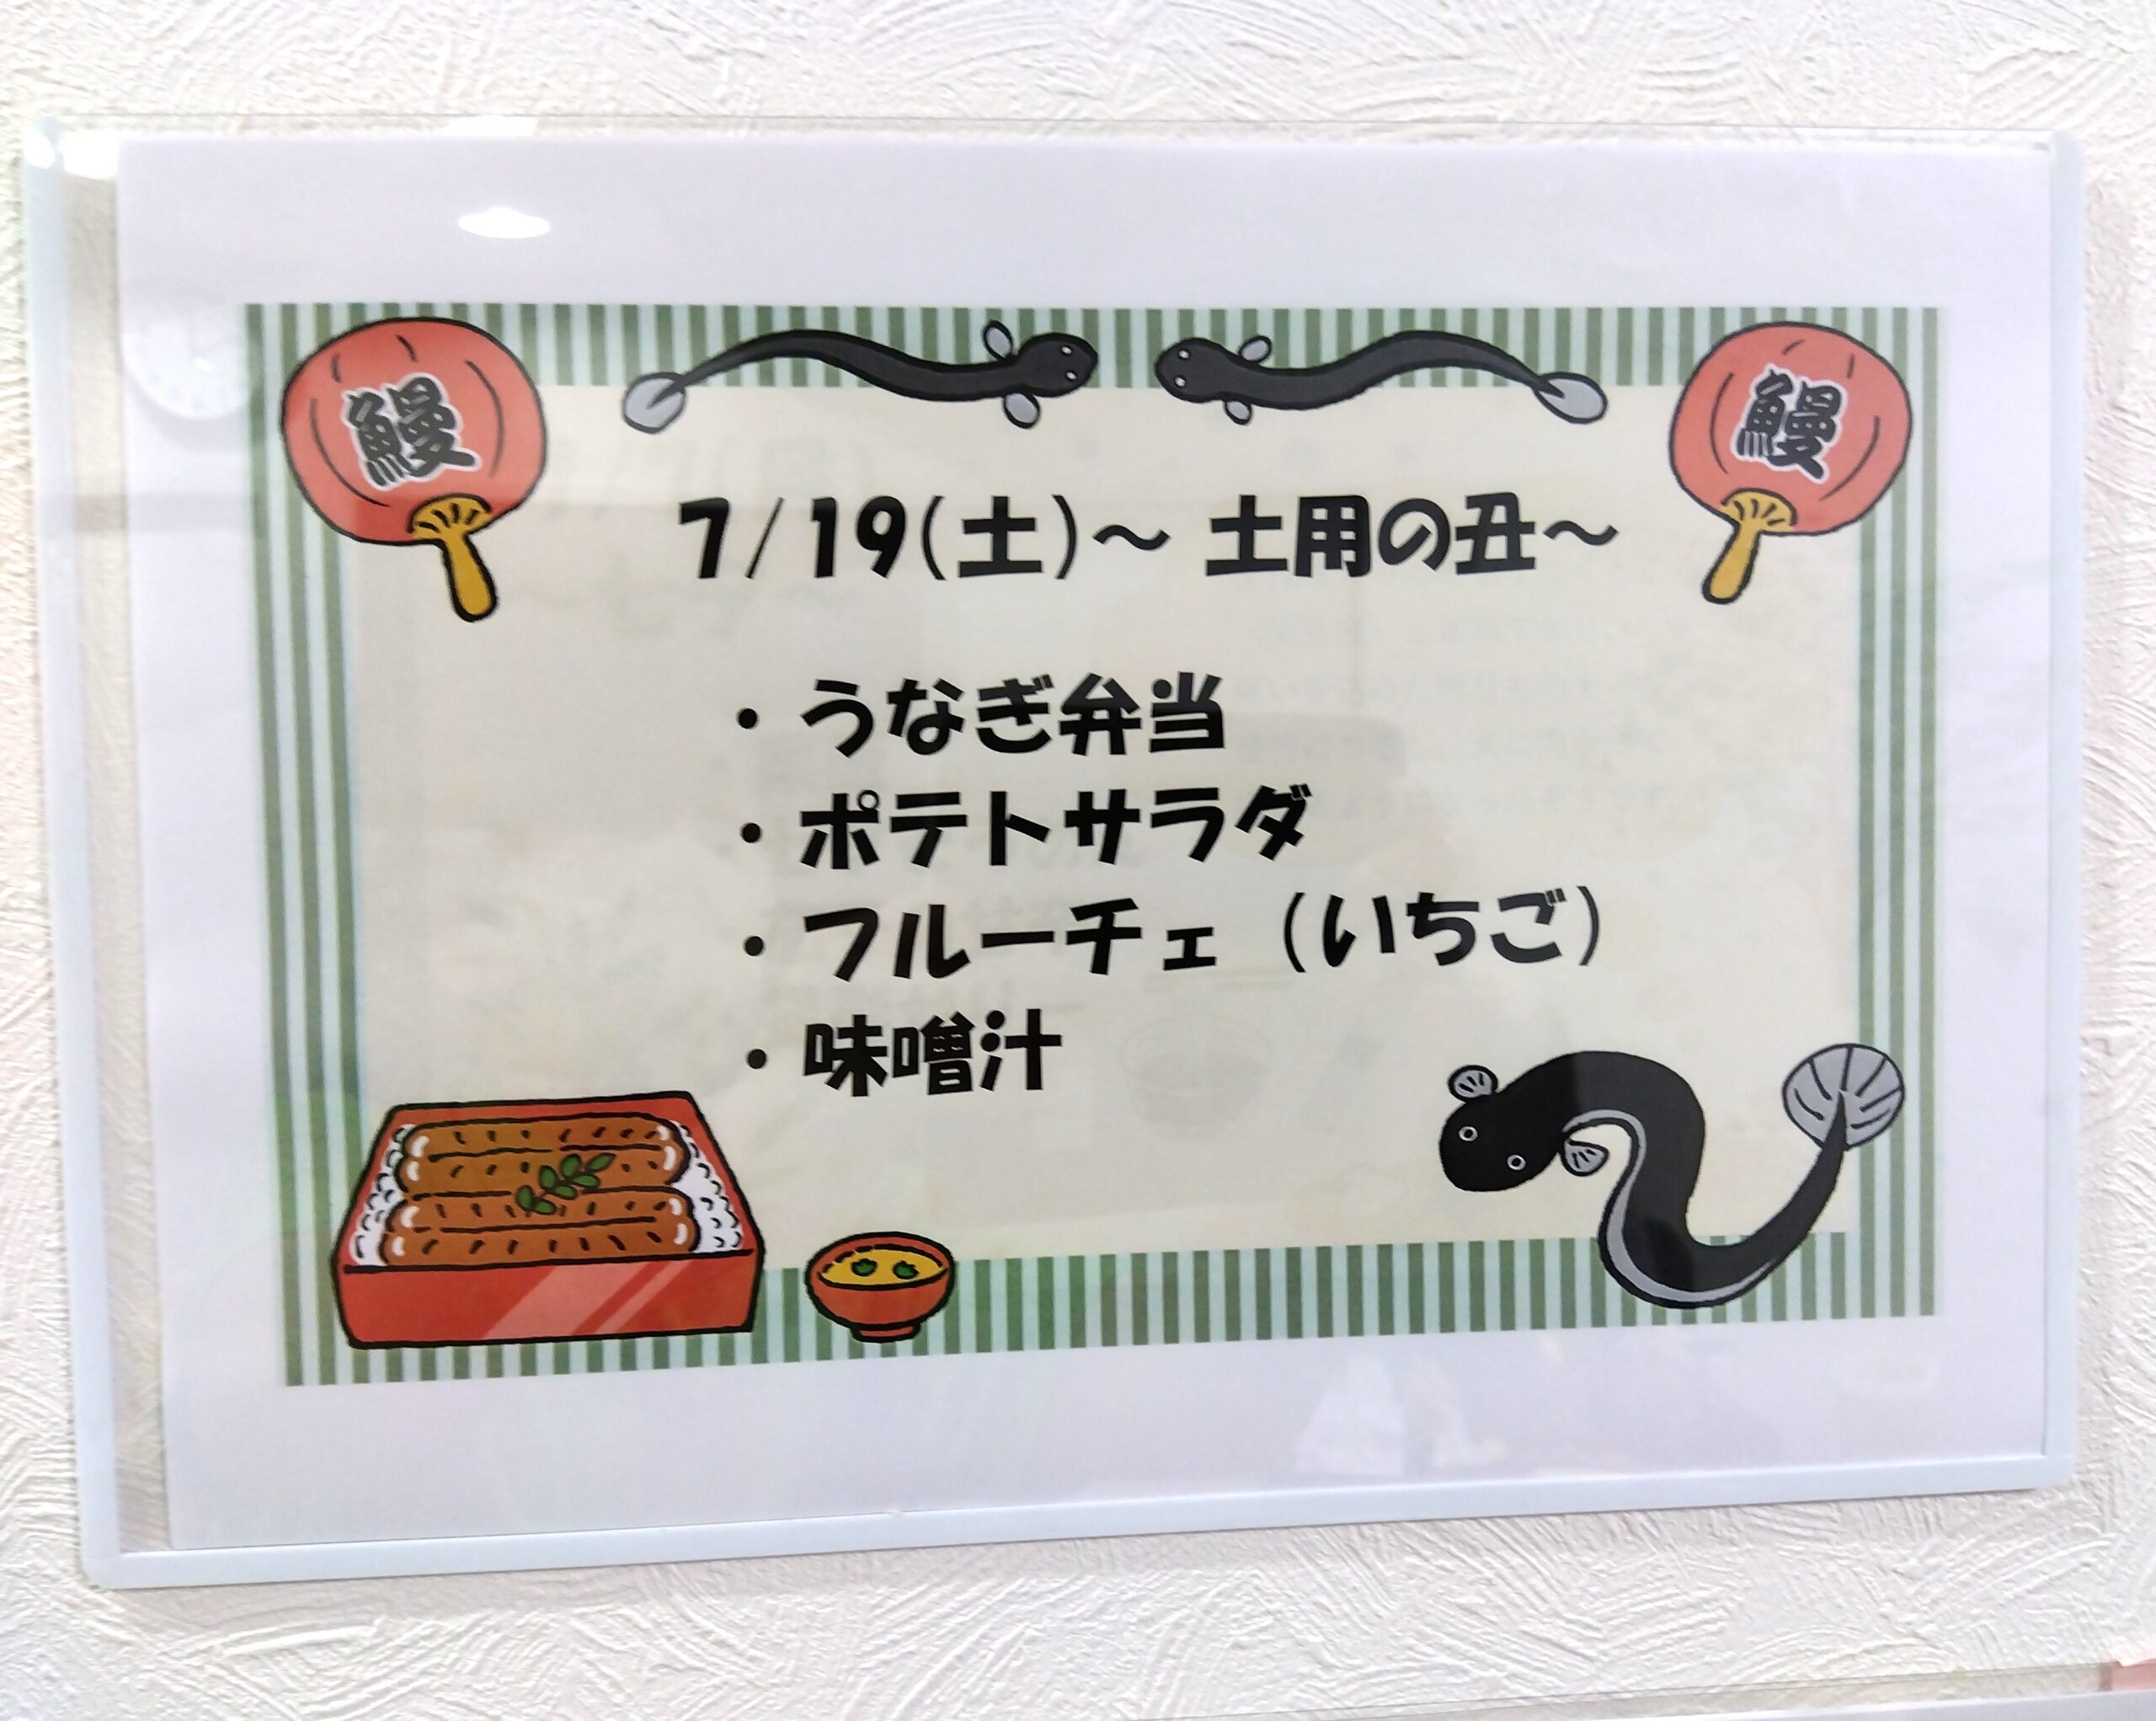 鰻
鰻
7/19(土)～ 土用の丑～
・うなぎ弁当
・ポテトサラダ
・フルーチェ（いちご）
・味噌汁